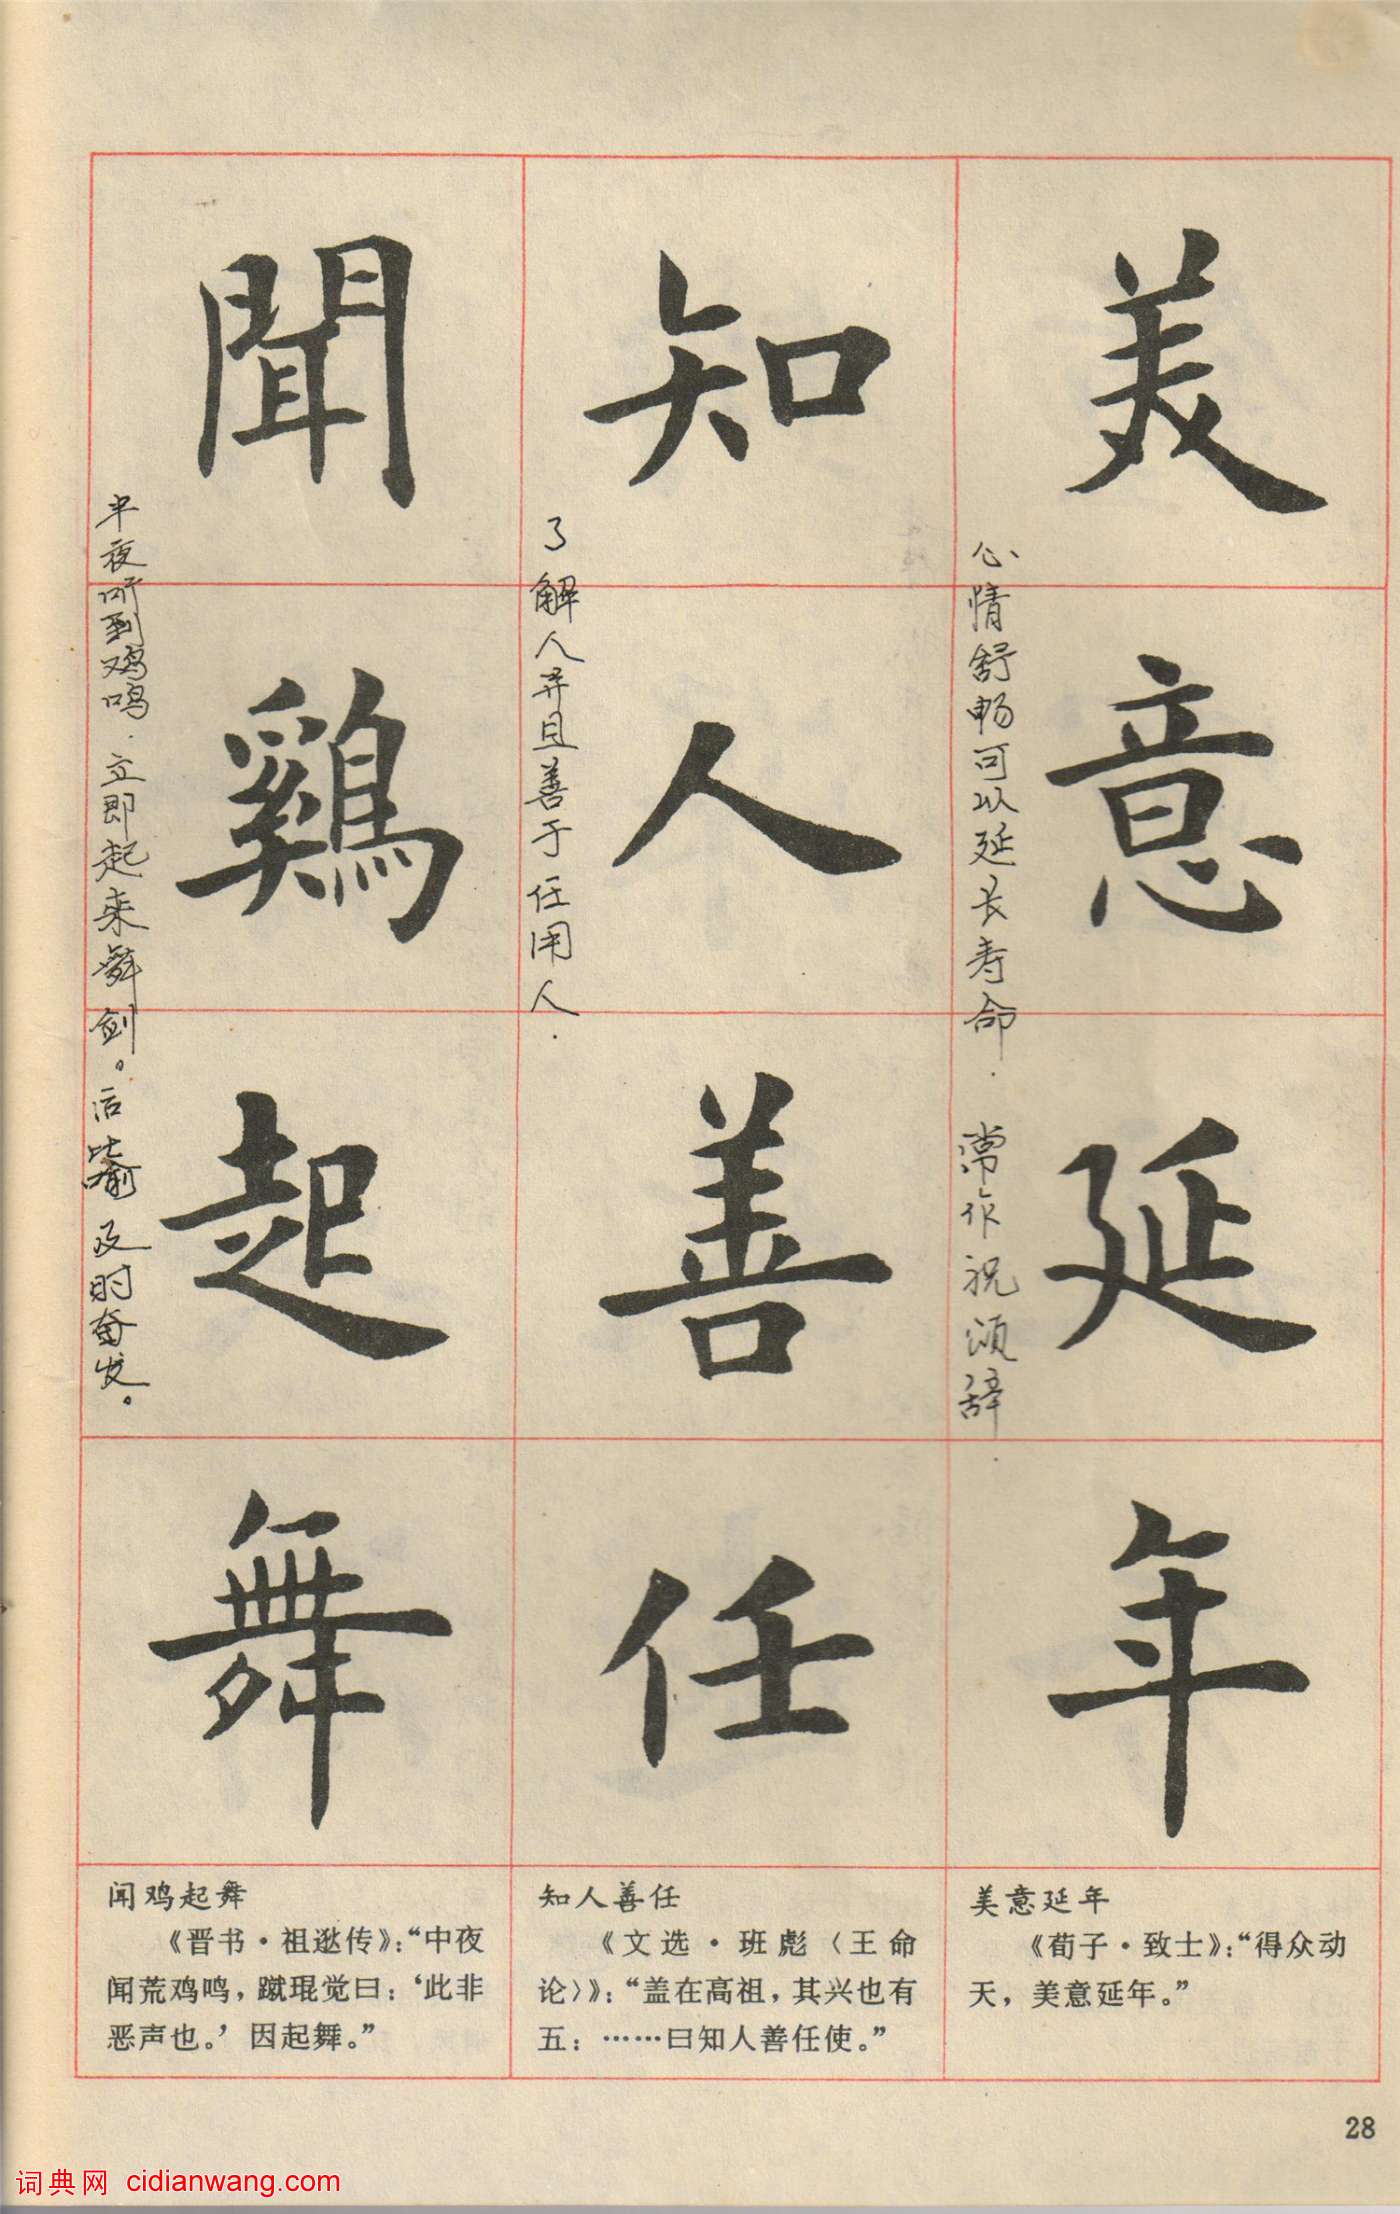 美意延年
心情舒畅可以延长寿命.常作祝颂辞.
知人善任
了解人并且善于任用人.
聞鷄起舞
半夜听到鸡鸣.立即起来舞剑。后比喻及时奋发。
美意延年
《荀子·致士》:“得众动
天，美意延年。”
知人善任
《文选·班彪〈王命
论〉》:“盖在高祖，其兴也有
五：……曰知人善任使。”
闻鸡起舞
《晋书·祖逖传》:“中夜
闻荒鸡鸣，蹴琨觉曰：‘此非
恶声也。’因起舞。”
28
词典网 cidianwang.com